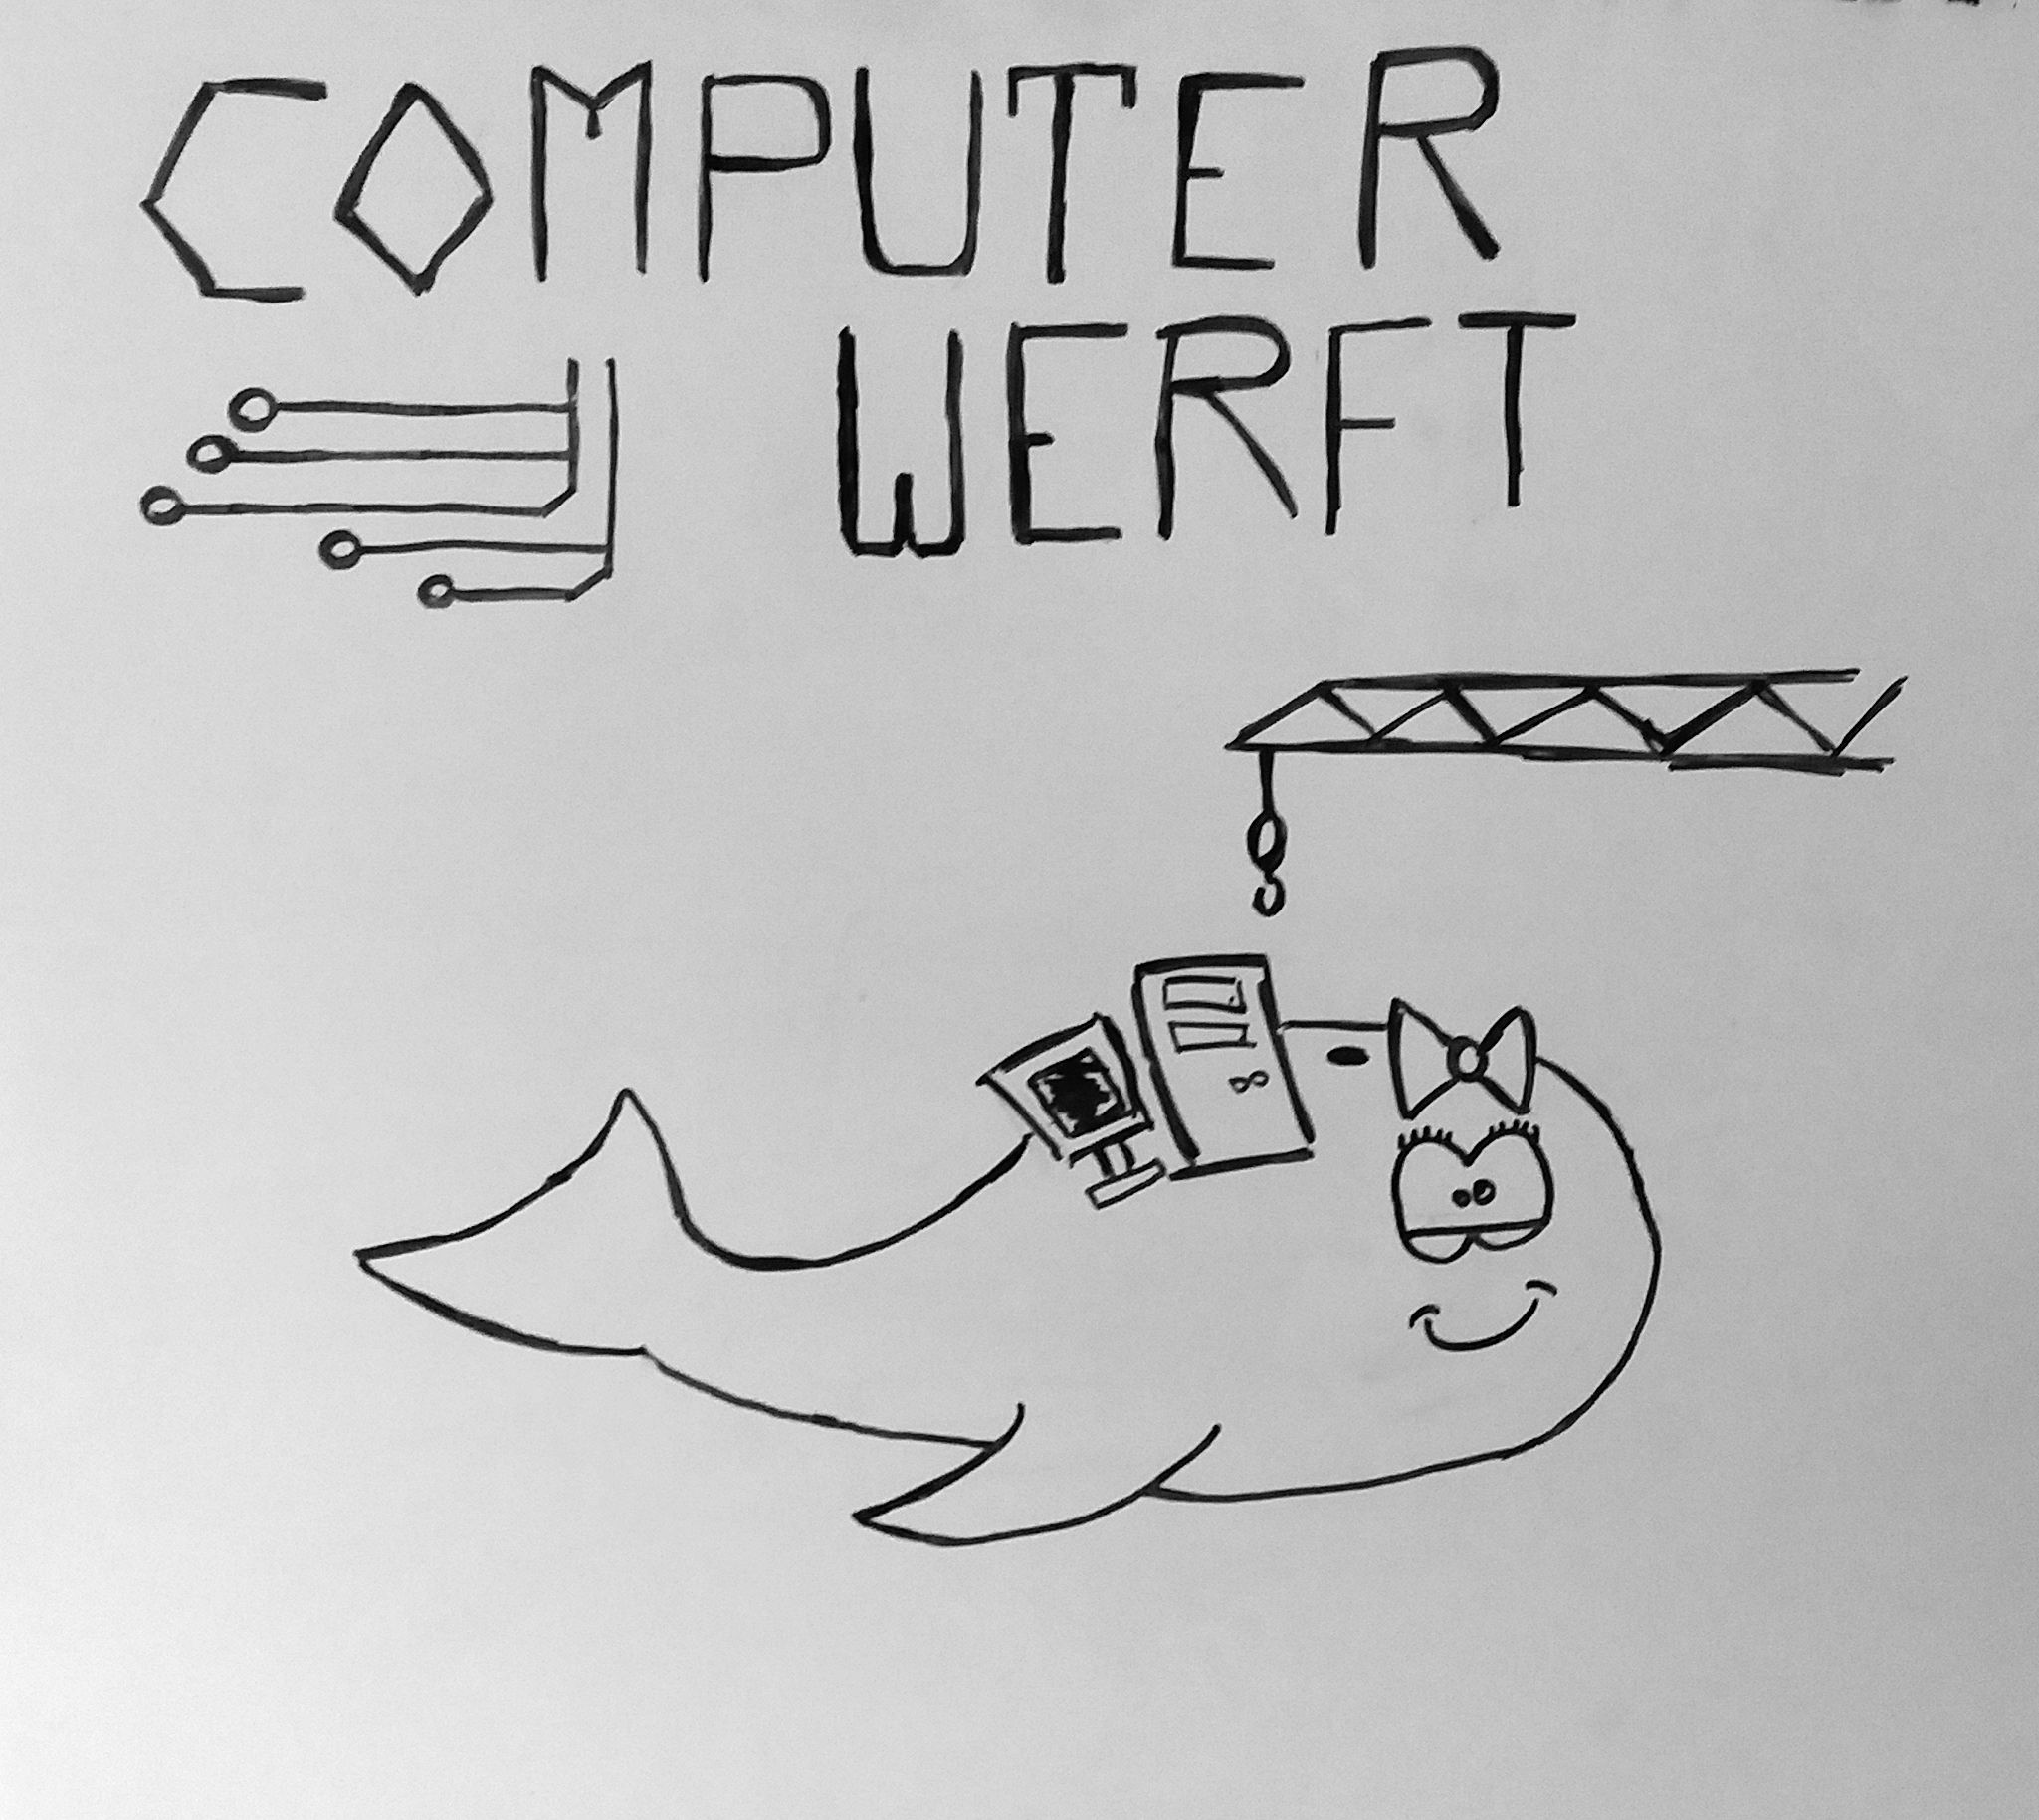 COMPUTER
WERFT